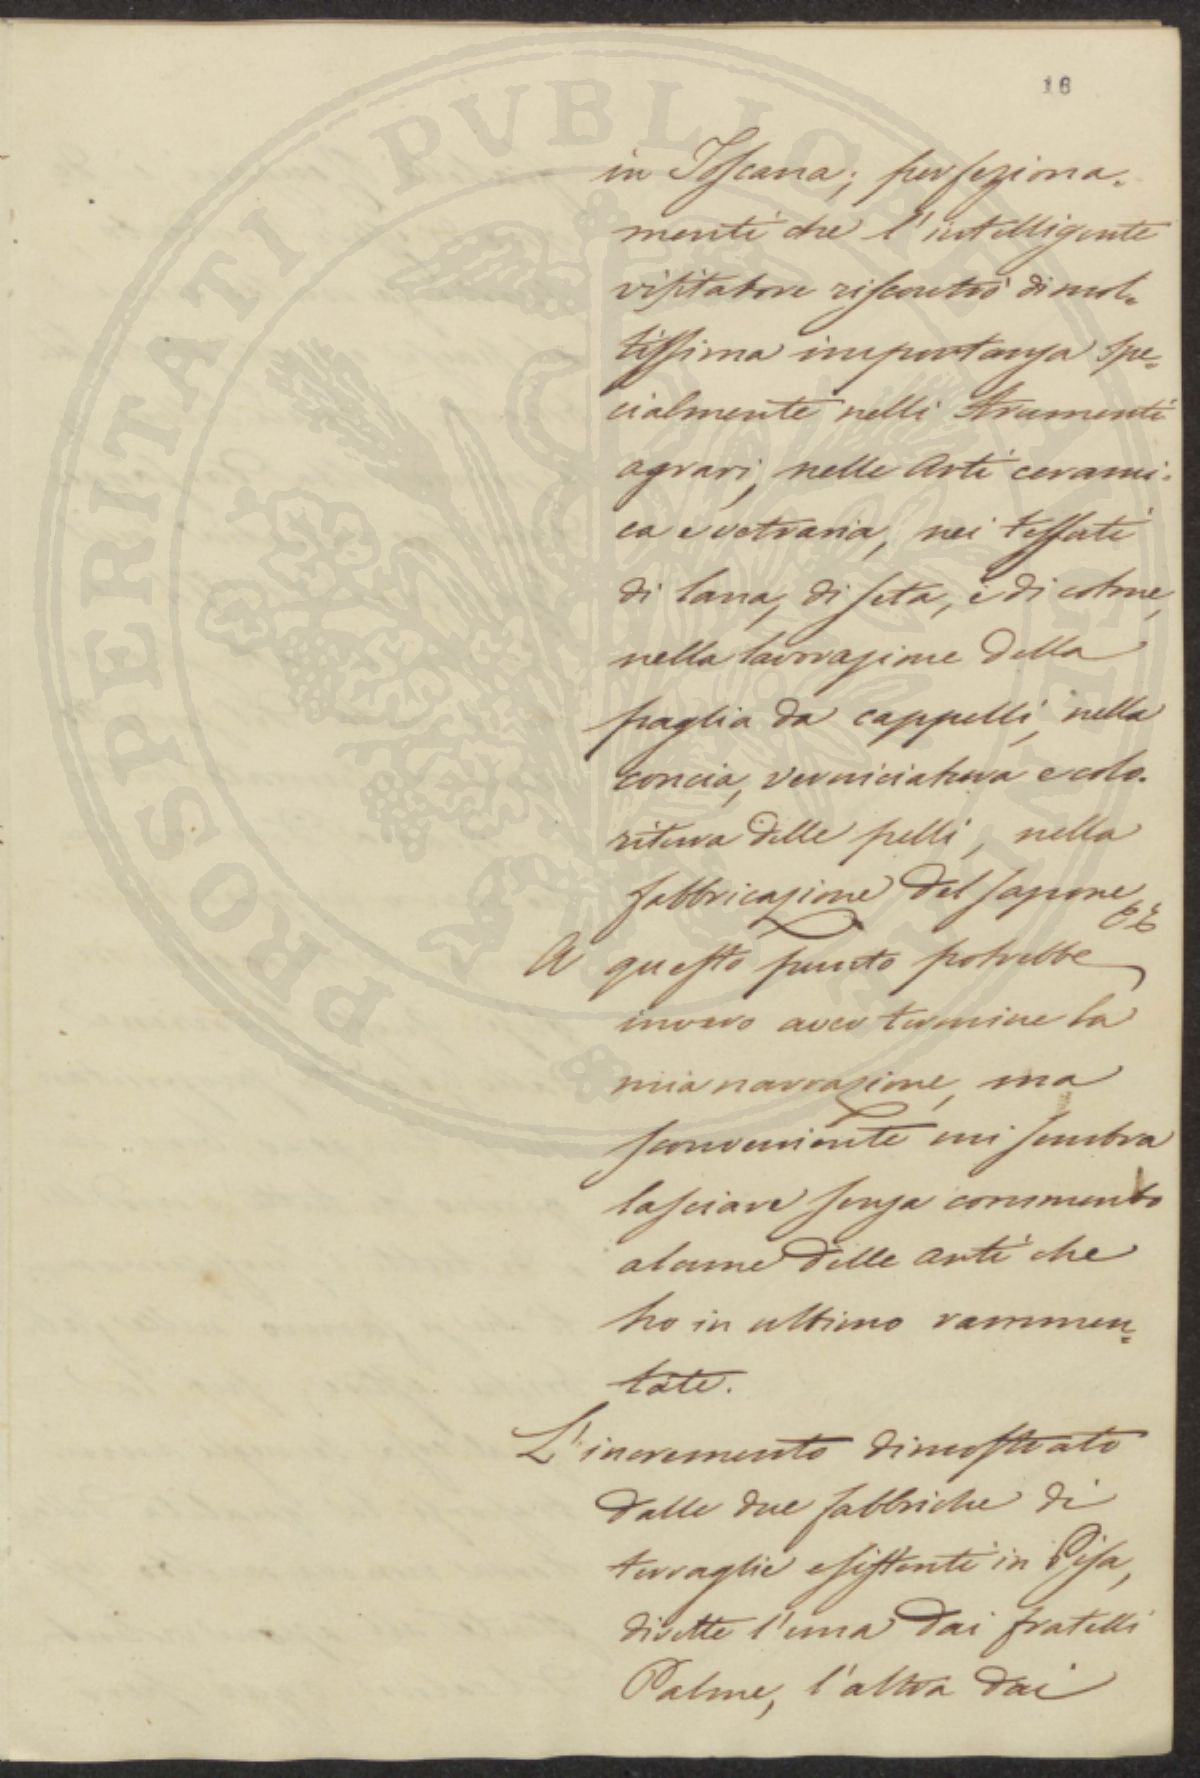 16
in Toscana; perfeziona-
menti che l'intelligente
visitatore riscontrò di mol-
tissima importanza spe-
cialmente nelli strumenti
agrari, nelle arti cerami-
ca e vetraria, nei tessuti
di lana, di seta, e di cotone,
nella lavorazione della
paglia da cappelli, nella
concia, verniciatura e colo-
ritura delle pelli, nella
fabbricazione del sapone
A questo punto potrebbe
invero aver termine la
mia narrazione, ma
sconveniente mi sembra
lasciare senza commento
alcune delle arti che
ho in ultimo rammen-
tate.
L'incremento dimostrato
dalle due fabbriche di
terraglie esistenti in Pisa,
dirette l'una dai fratelli
Palme, l'altra dai
PROSPERITATI PUBLICAE AUGENDAE